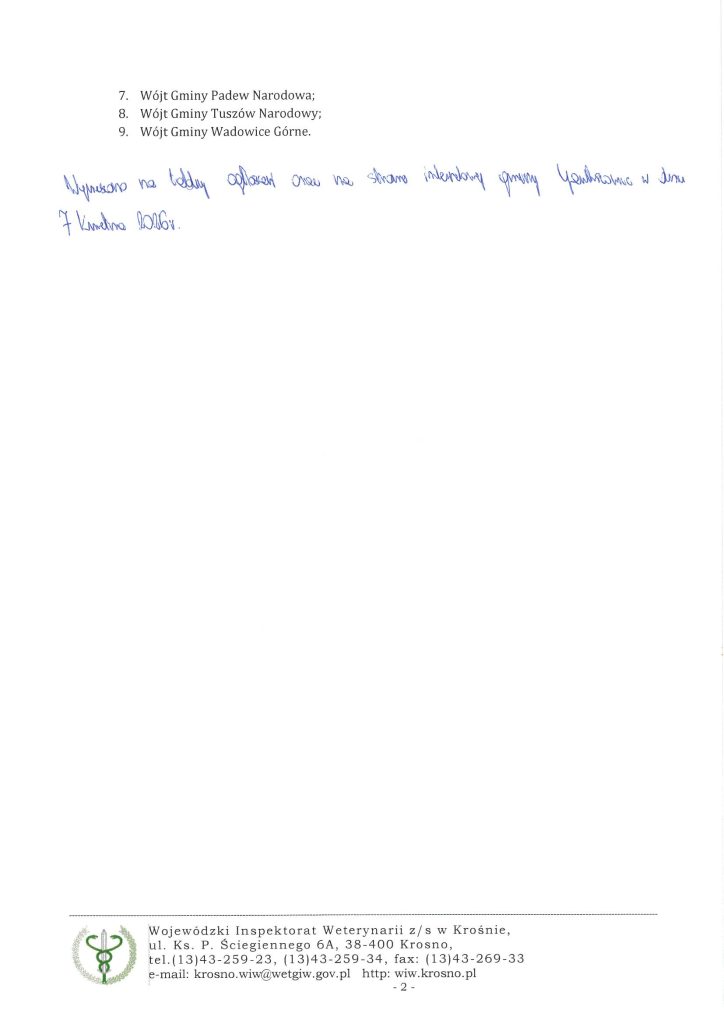 7. Wójt Gminy Padew Narodowa;
8. Wójt Gminy Tuszów Narodowy;
9. Wójt Gminy Wadowice Górne.
na tablicy ogłoszeń oraz na stronie internetowej gminy w dniu
7 kwietnia 2026r.
Wojewódzki Inspektorat Weterynarii z/s w Krośnie,
ul. Ks. P. Ściegiennego 6A, 38-400 Krosno,
tel.(13)43-259-23, (13)43-259-34, fax: (13)43-269-33
e-mail: krosno.wiw@wetgiw.gov.pl http: wiw.krosno.pl
- 2 -